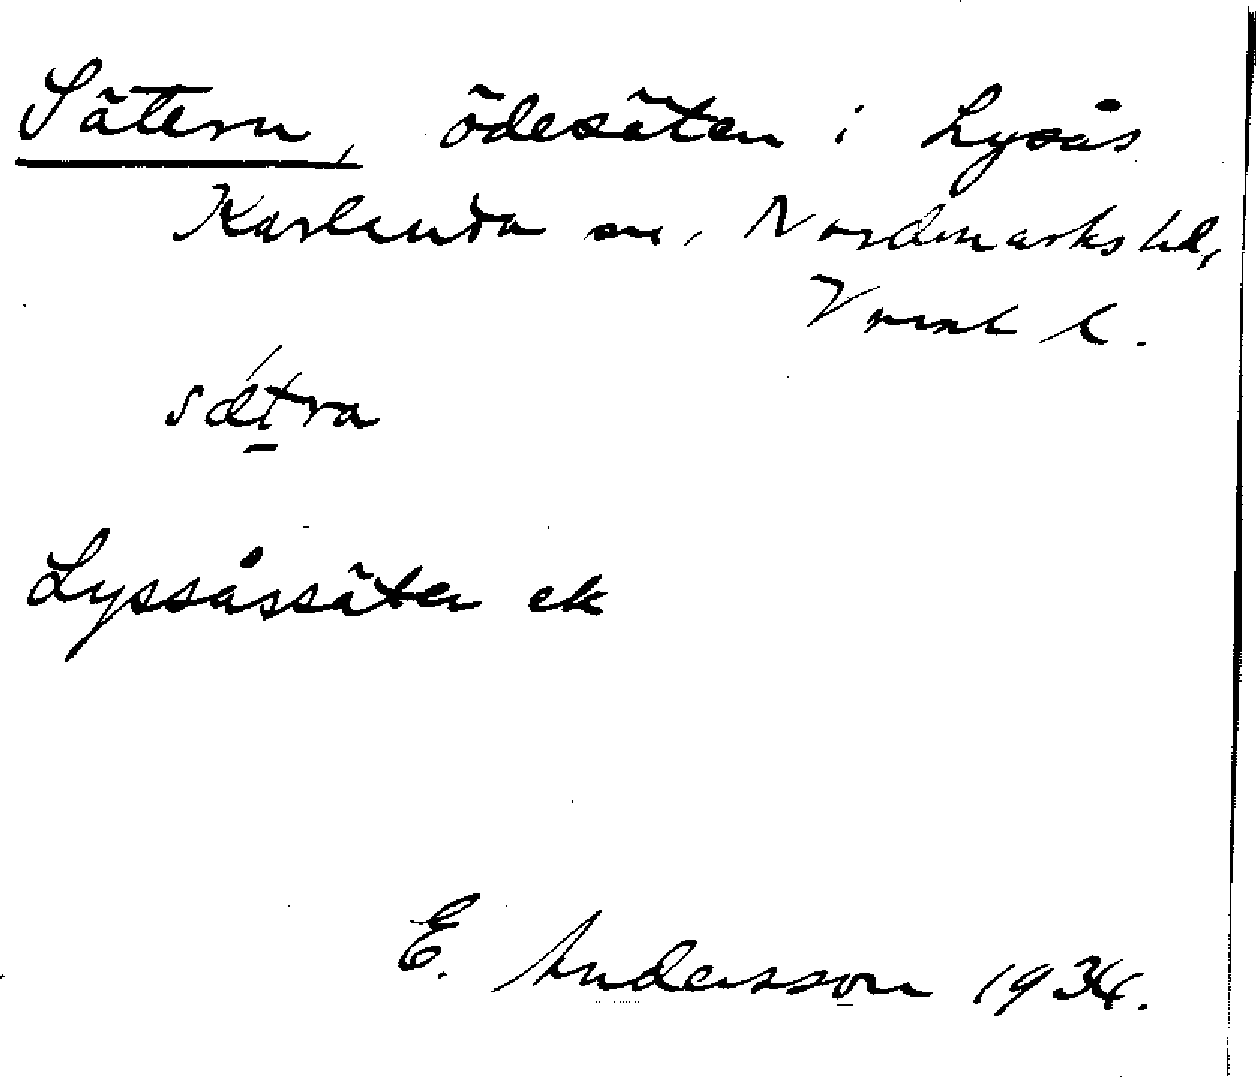 Sätern, ödesäter i Lysås
Karlanda sn, Nordmarks hd,
Värml l.
sǽt̠ra
Lyssåssäter ek
E. Andersson 1934.